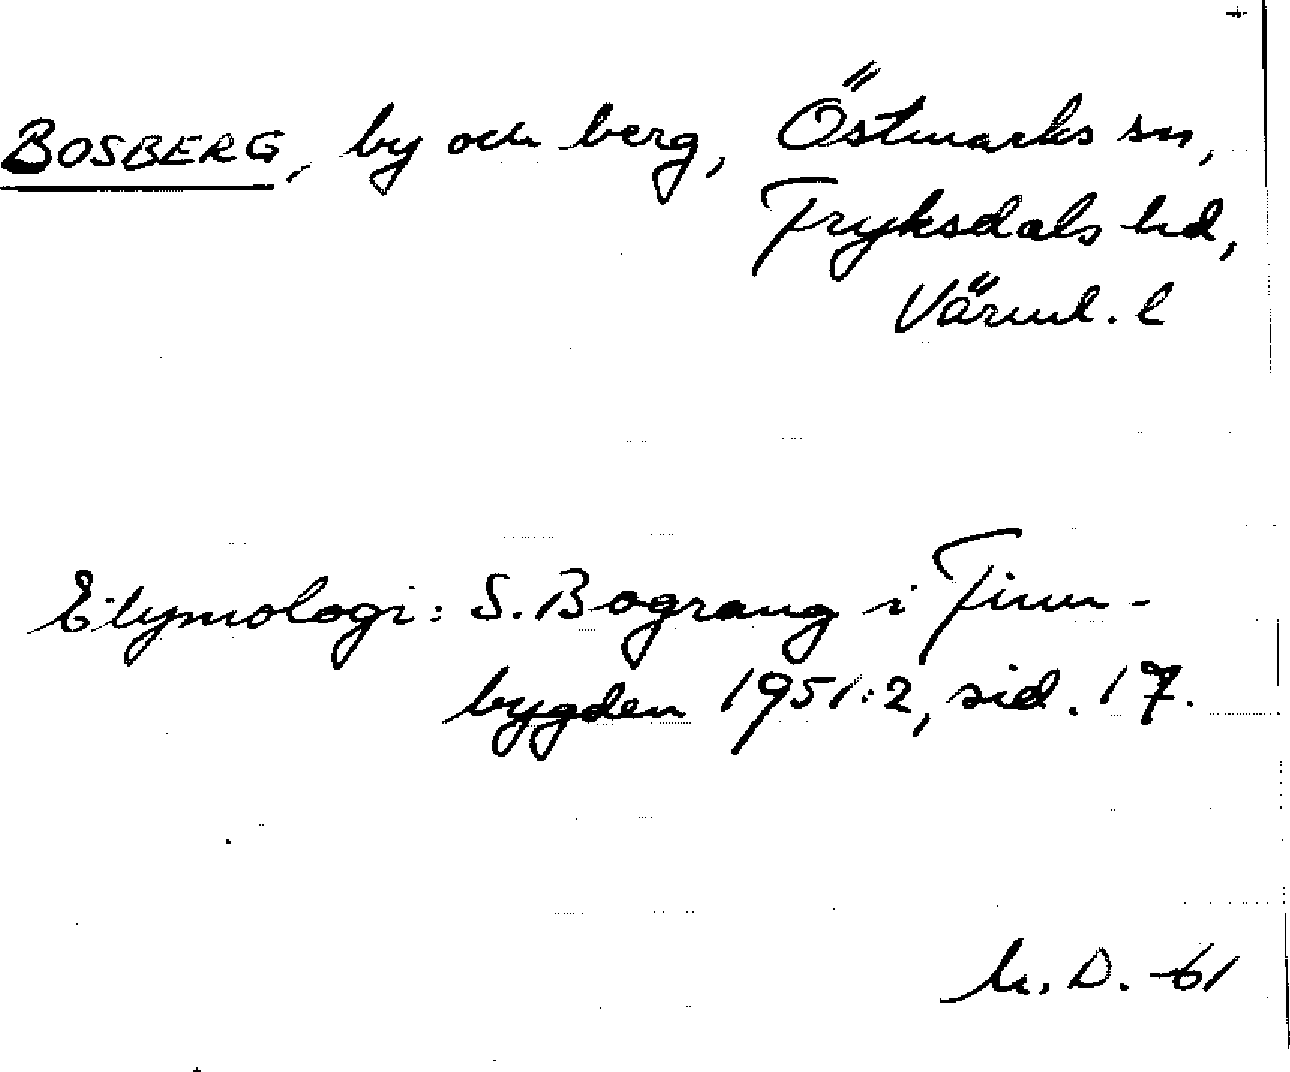 BOSBERG, by och berg, Östmarks sn,
Fryksdals hd,
Värml. l
Etymologi: S. Bograng i Finn-
bygden 1951:2, sid. 17.
h. D. -61